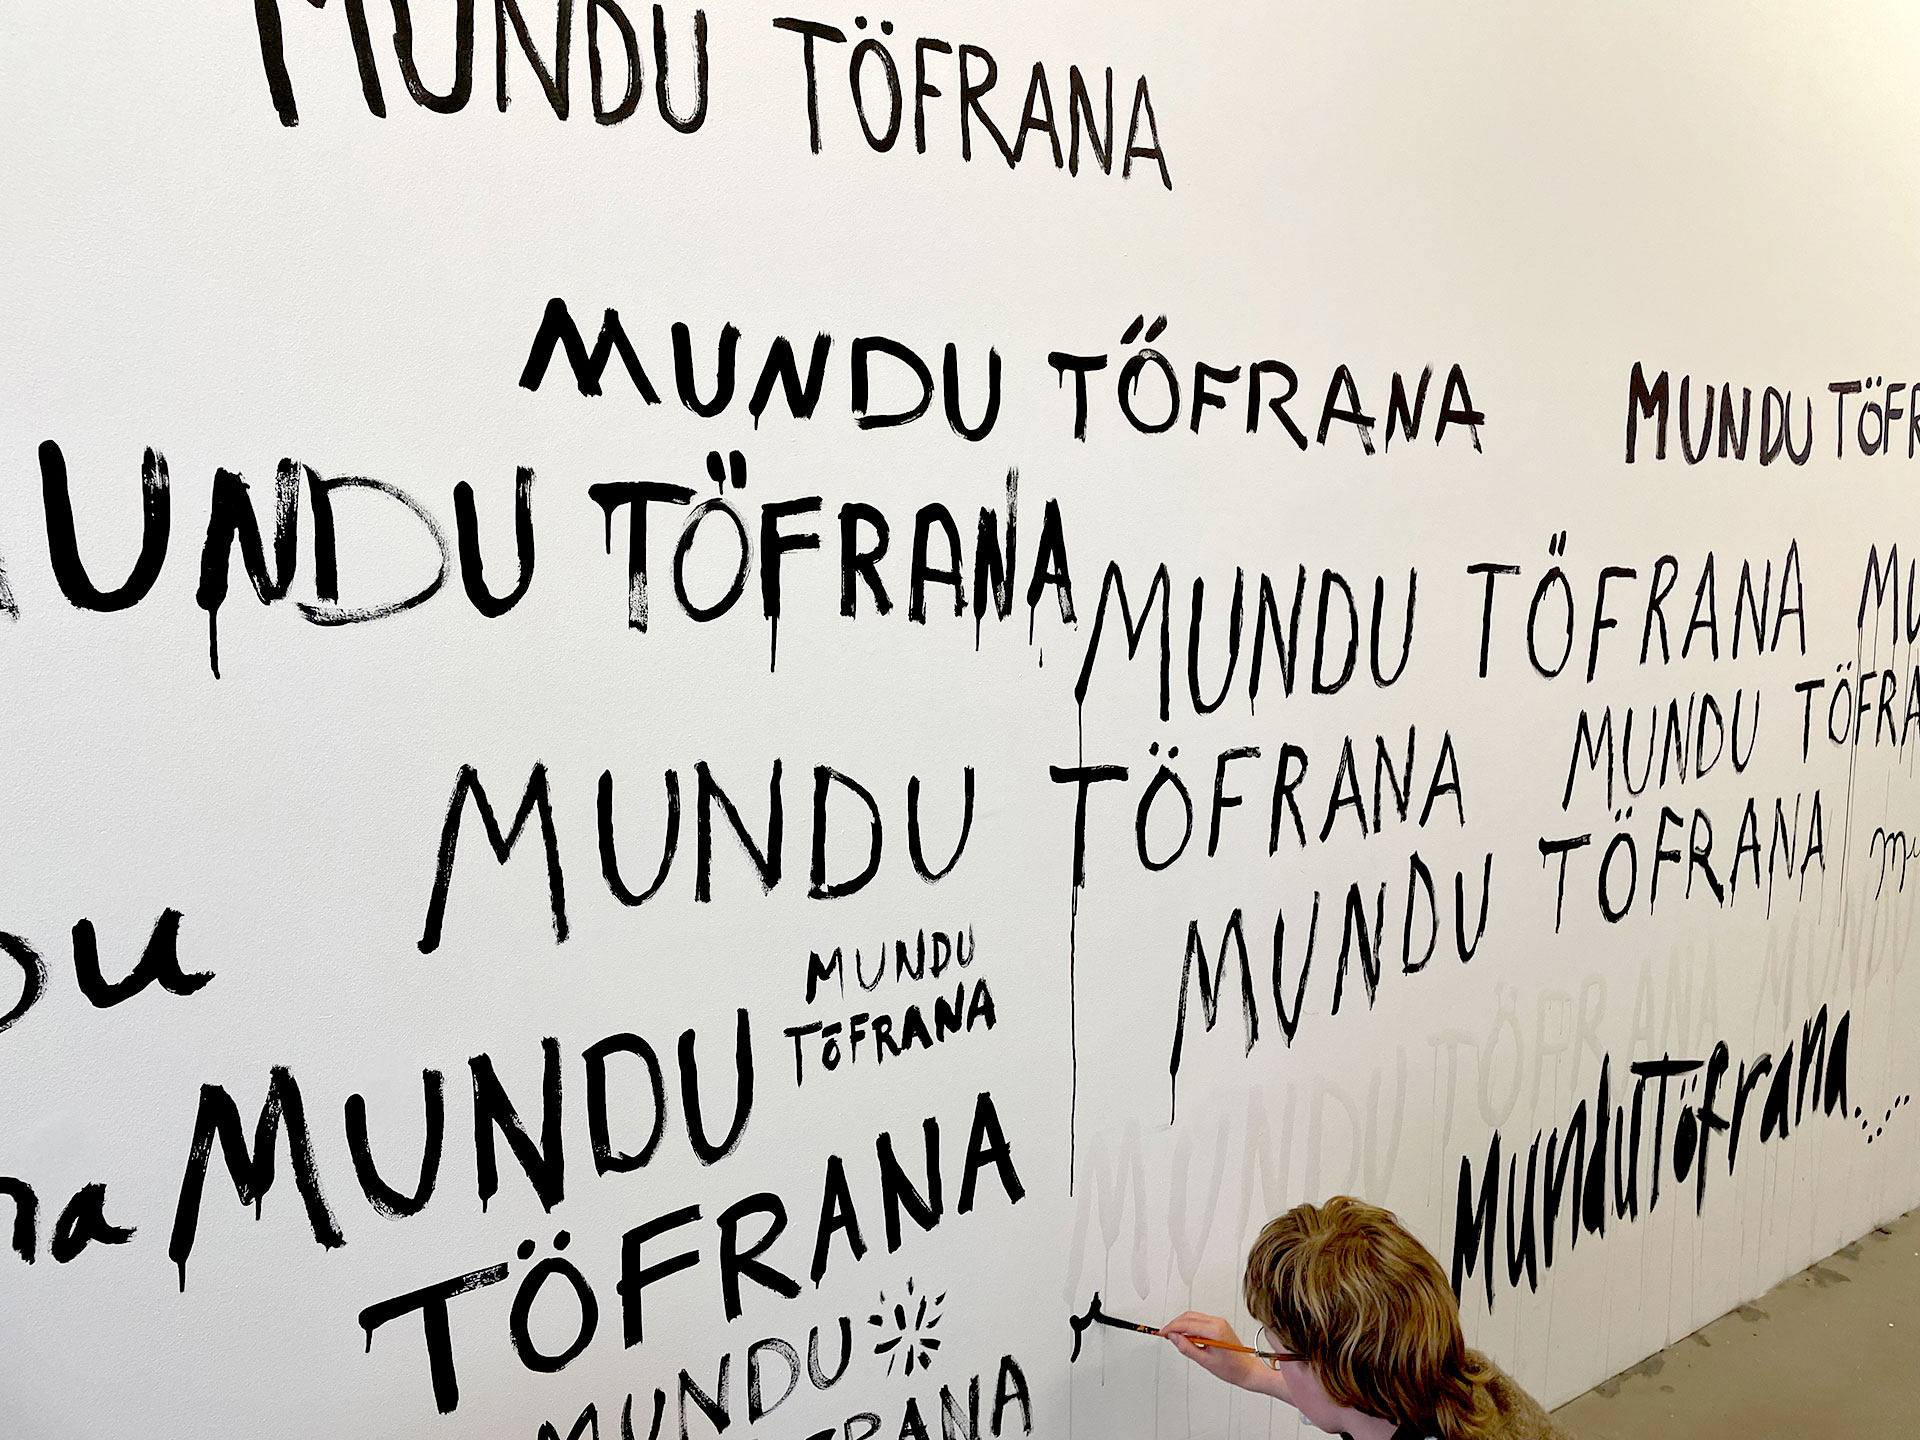 MUNDU TÖFRANA
MUNDU TÖFRANA
MUNDU TÖFR
UNDU TÖFRANA
MUNDU TÖFRANA
MU
MUNDU TÖFRANA
MUNDU TÖFRA
MUNDU TÖFRANA
Mu
DU
MUNDU
TÖFRANA
MUNDU TÖFRANA MUNDU
MUNDU
TÖFRANA
MunduTöfrana
na
MUNDU
FRANA